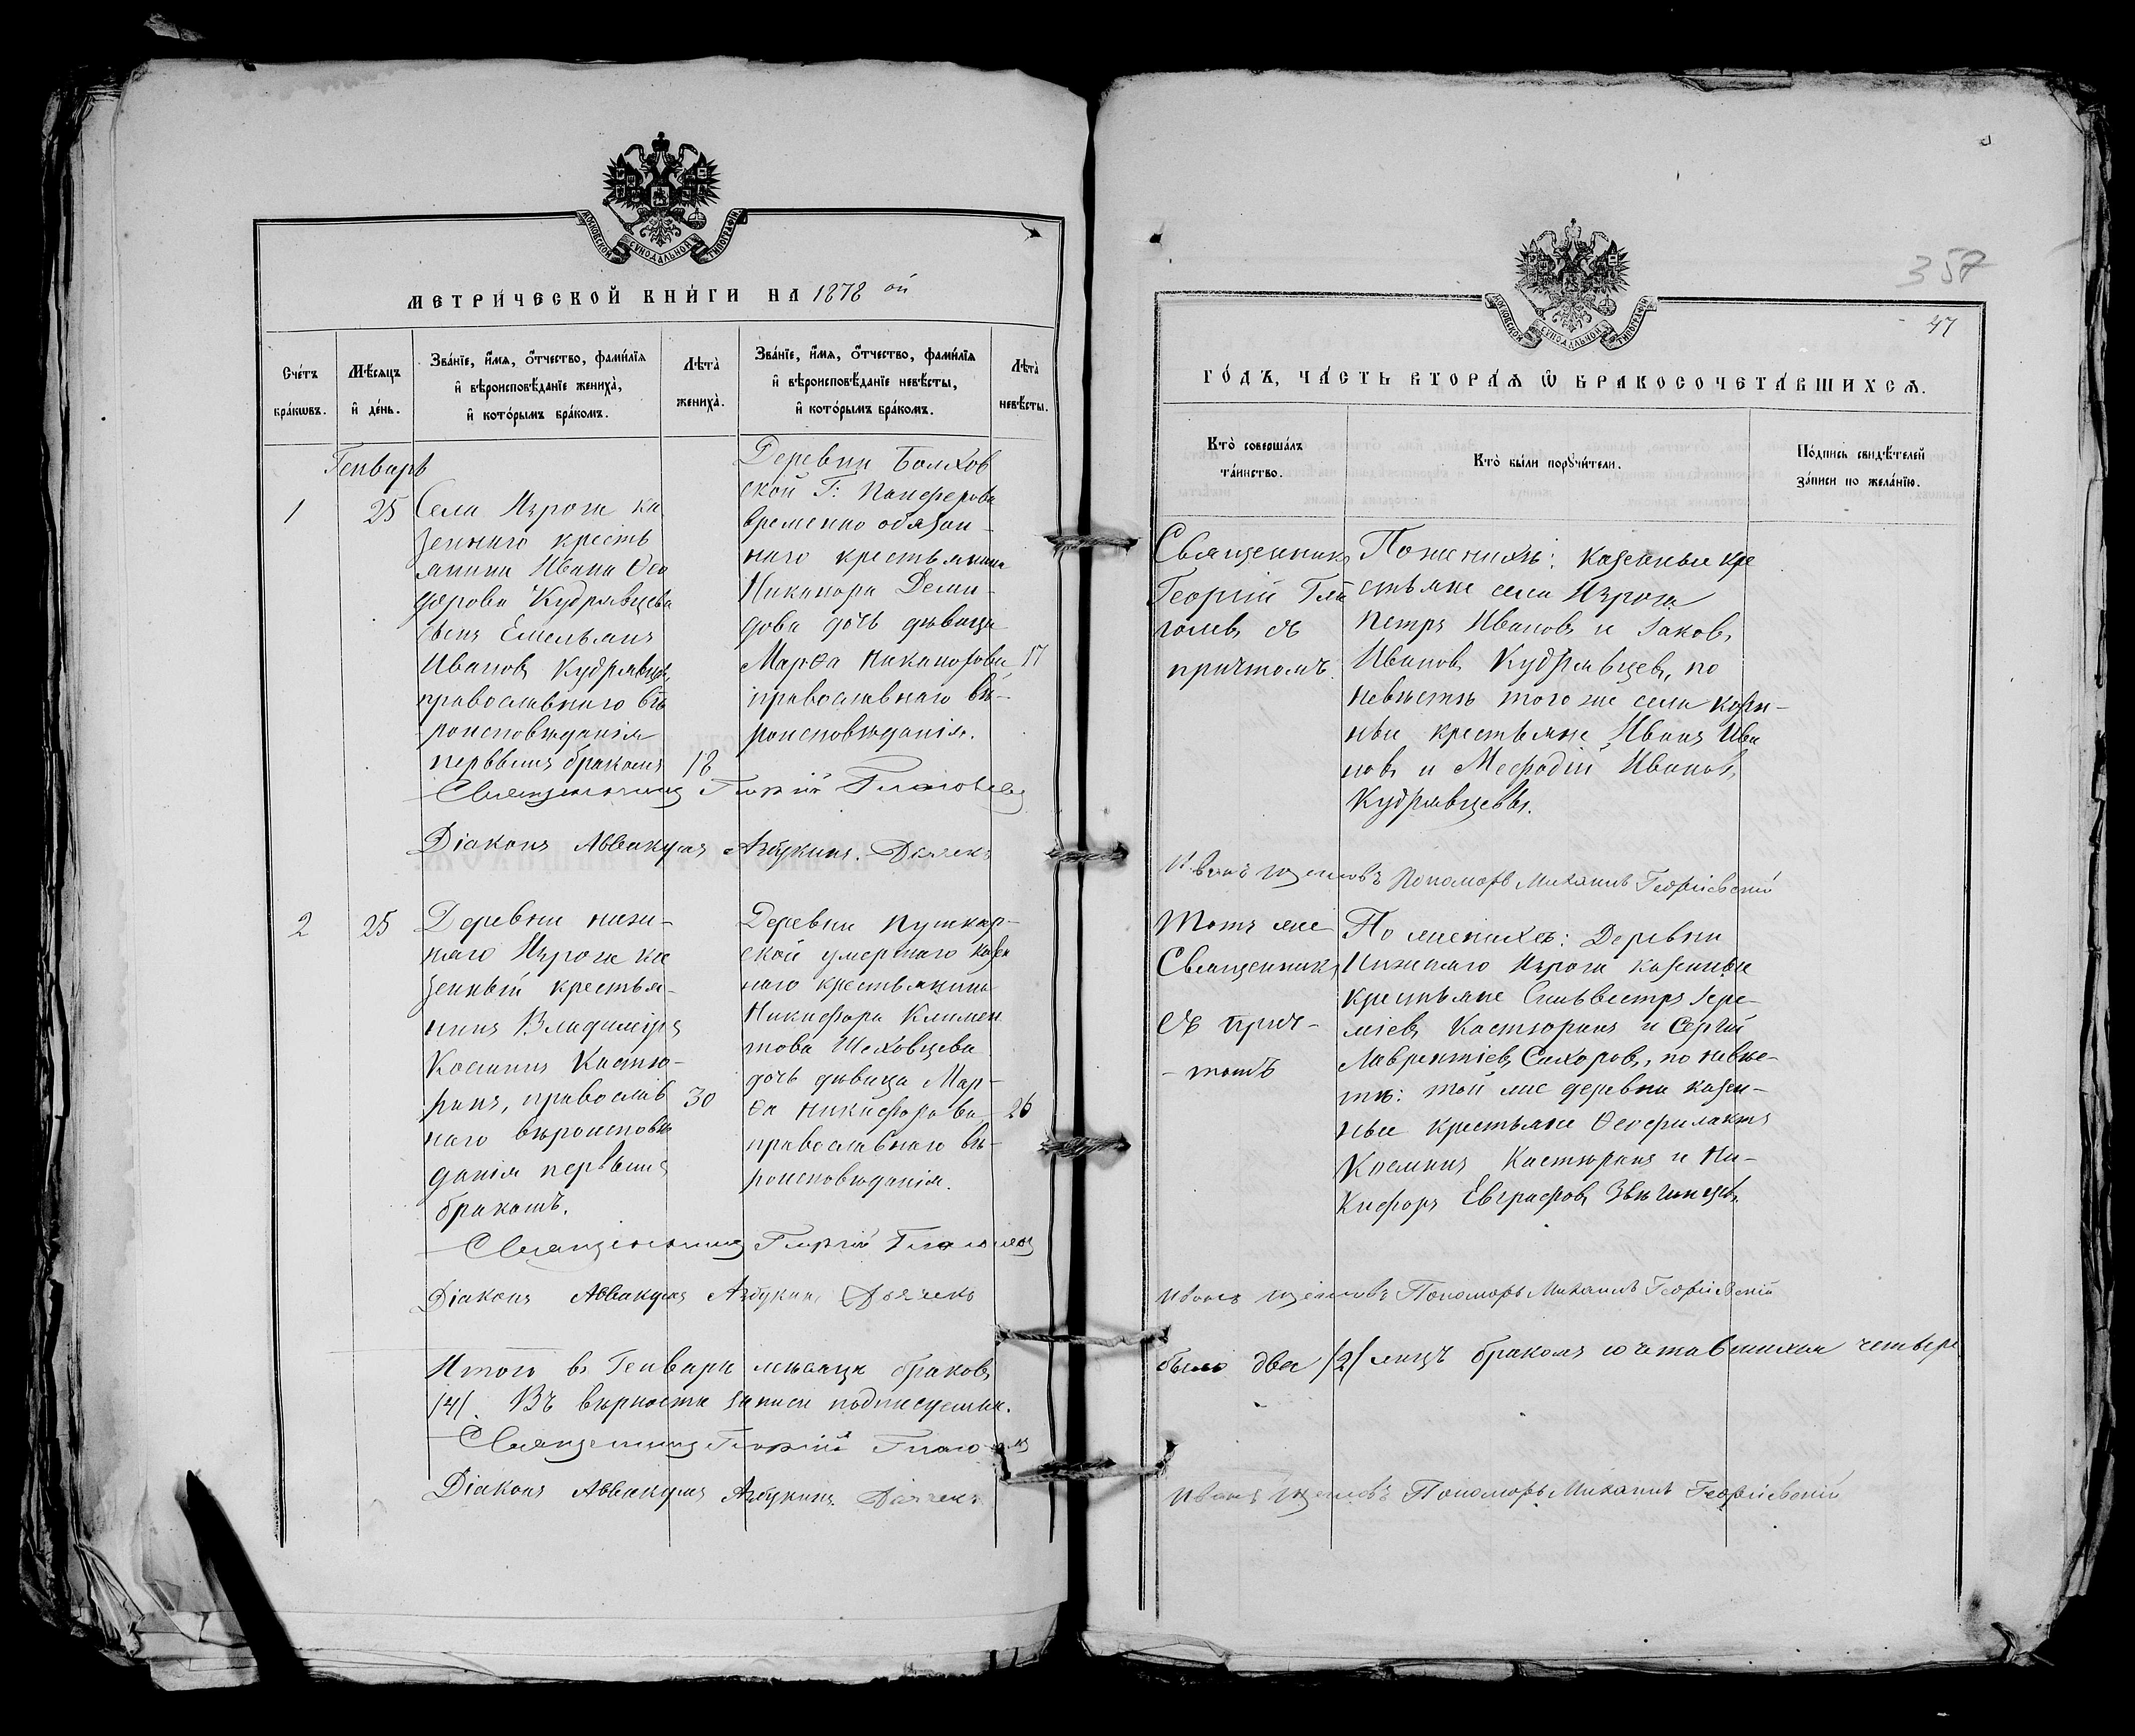 МОСКОВСКОЙ СѴНОДАЛЬНОЙ ТИПОГРАФІИ
МЕТРИ́ЧЕСКОЙ КНИ́ГИ НА 1878 ой
Сче́тъ бра́кѡвъ.
Мѣ́сяцъ и҆ де́нь.
Зва́нїе, и҆́мѧ, ѻ҆́тчество, фами́лїѧ
и҆ вѣроисповѣ́данїе жениха̀,
и҆ кото́рымъ бра́комъ.
Лѣта̀
жениха̀.
Зва́нїе, и҆́мѧ, ѻ҆́тчество, фами́лїѧ
и҆ вѣроисповѣ́данїе невѣ́сты,
и҆ кото́рымъ бра́комъ.
Лѣта̀
невѣ́сты.
Генварь
1
25
Села Изрога ка
зеннаго кресть
янина Ивана Ѳео
дорова Кудрявцева
сынъ Емельянъ
Ивановъ Кудрявцевъ,
православнаго вѣ
роисповѣданія
первымъ бракомъ
18
Деревни Болхов
ской Г: Панферова
временно обязан-
наго крестьянина
Никанора Деми-
дова дочь дѣвица
Марѳа Никанорова
православнаго вѣ-
роисповѣданія.
17
Священникъ Георгій Глаголевъ
Діаконъ Аввакумъ Азбукинъ. Дьячекъ
2
25
Деревни нижн-
няго Изрога ка
зенный крестья-
нинъ Владиміръ
Косминъ Костю-
ринъ, православ
наго вѣроисповѣ
данія первымъ
бракомъ.
30
Деревни Пушкар-
ской умершаго казен
наго крестьянина
Никифора Климен
това Шеховцева
дочь дѣвица Мар-
ѳа Никифорова
православнаго вѣ-
роисповѣданія.
26
Священникъ Георгій Глаголевъ
Діаконъ Аввакумъ Азбукинъ Дьячекъ
Итого въ Генварѣ мѣсяцѣ браковъ
/4/. Въ вѣрности записи подписуемся.
Священникъ Георгій Глаголевъ
Діаконъ Аввакумъ Азбукинъ Дьячекъ
357
МОСКОВСКОЙ СѴНОДАЛЬНОЙ ТИПОГРАФІИ
47
ГО́ДЪ, ЧА́СТЬ ВТОРА́Ѧ Ѿ БРАКОСОЧЕТА́ВШИХСѦ.
Кто̀ соверша́лъ
та́инство.
Кто̀ бы́ли порꙋчи́тели.
По́дпись свидѣ́телей
за́писи по жела́нїю.
Священникъ
Георгій Гла
голевъ съ
причтомъ.
По женихѣ: казенные кре
стьяне села Изрога
Петръ Ивановъ и Іаковъ
Ивановъ Кудрявцевъ, по
невѣстѣ того же села казен-
ные крестьяне Иванъ Ива
новъ и Мефодій Ивановъ
Кудрявцевы.
Пономарь Михаилъ Георгіевскій
Тотъ же
Священникъ
съ прич-
-томъ
По женихѣ: Деревни
Нижняго Изрога казенные
крестьяне Сильвестръ Іере-
міевъ Костюринъ и Сергій
Лаврентіевъ Сахоровъ, по невѣс-
тѣ: той же деревни казен-
ные крестьяне Ѳеофилактъ
Косминъ Костюринъ и Ни-
кифоръ Евграфовъ Звягинцевъ
Пономарь Михаилъ Георгіевскій
было два /2/ лицъ бракомъ сочетавшихся четыре
Пономарь Михаилъ Георгіевскій